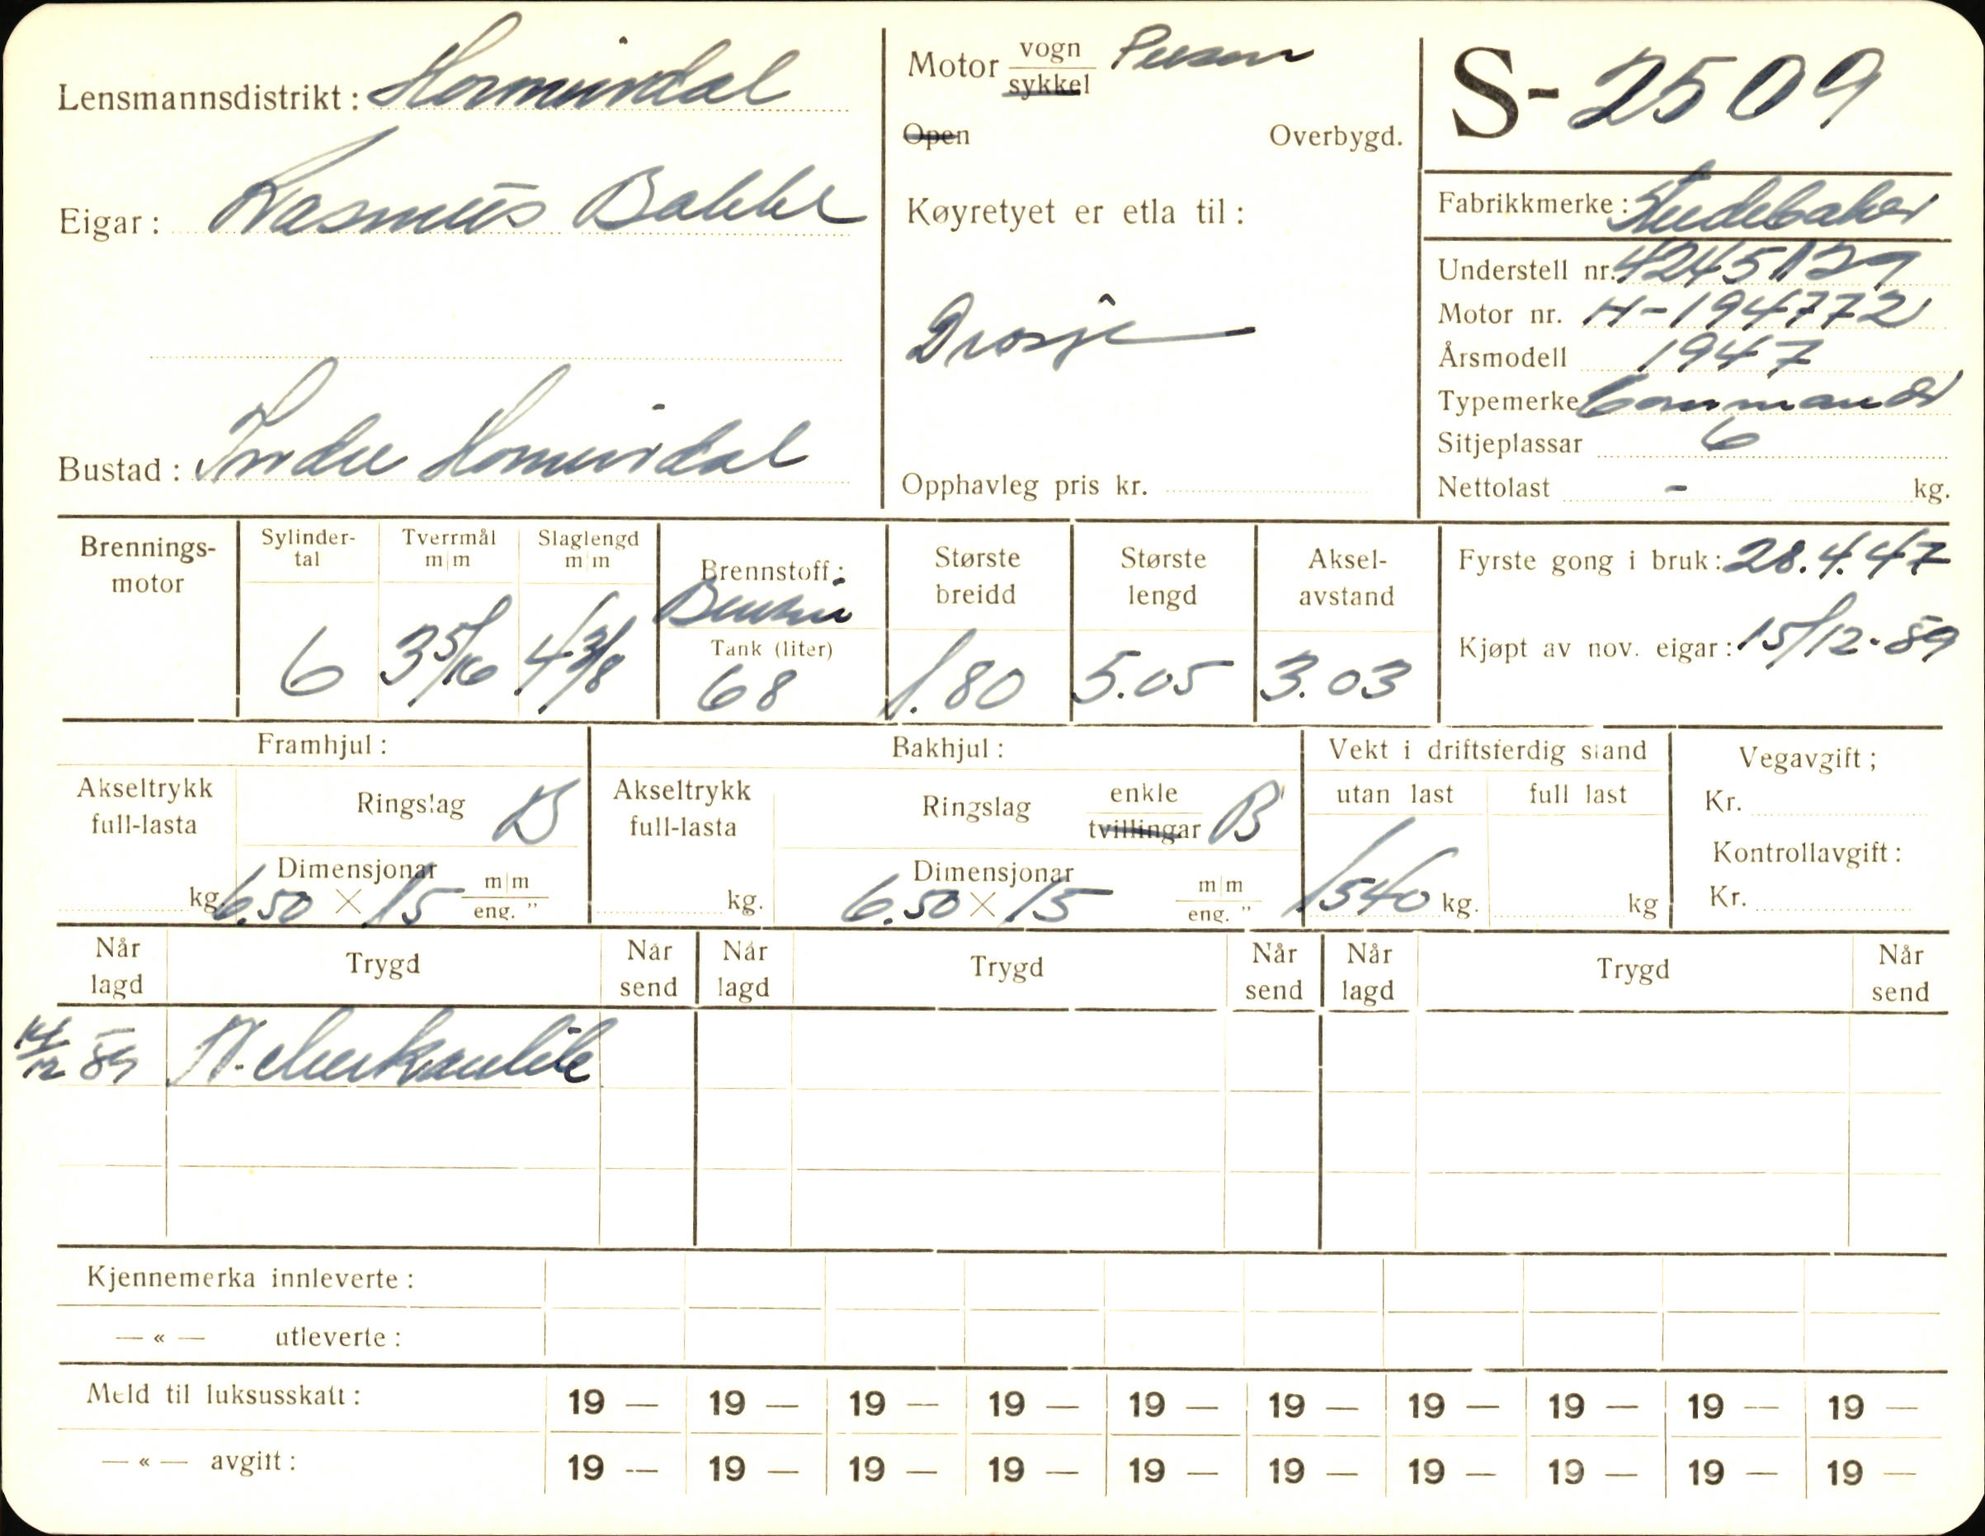 Lensmannsdistrikt: Hornindal
Eigar: Rasmus Bakke
Bustad: Indre Hornindal
Motor vogn Person
sykkel
Open Overbygd.
Køyretyet er etla til:
Drosje
Opphavleg pris kr.
S-2509
Fabrikkmerke: Studebaker
Understell nr. 4245129
Motor nr. H-194772
Årsmodell 1947
Typemerke Commander
Sitjeplassar 6
Nettolast - kg.
Brennings-
motor
Sylinder-
tal
6
Tverrmål
m/m
3 5/16
Slaglengd
m/m
4 3/8
Brennstoff:
Bensin
Tank (liter)
68
Største
breidd
1.80
Største
lengd
5.05
Aksel-
avstand
3.03
Fyrste gong i bruk: 28.4.47
Kjøpt av nov. eigar: 15/12-59
Framhjul:
Akseltrykk
full-lasta
kg.
Ringslag B
Dimensjonar
6.50 × 15 m/m
eng. "
Bakhjul:
Akseltrykk
full-lasta
kg.
Ringslag enkle
tvillingar B
Dimensjonar
6.50 × 15 m/m
eng. "
Vekt i driftsferdig stand
utan last full last
1540 kg. kg
Vegavgift;
Kr.
Kontrollavgift:
Kr.
Når
lagd Trygd Når
send Når
lagd Trygd Når
send Når
lagd Trygd Når
send
12 59 N. Merkantile
Kjennemerka innleverte:
— « — utleverte:
Meld til luksusskatt: 19 — 19 — 19 — 19 — 19 — 19 — 19 — 19 — 19 — 19 —
— « — avgift: 19 — 19 — 19 — 19 — 19 — 19 — 19 — 19 — 19 — 19 —